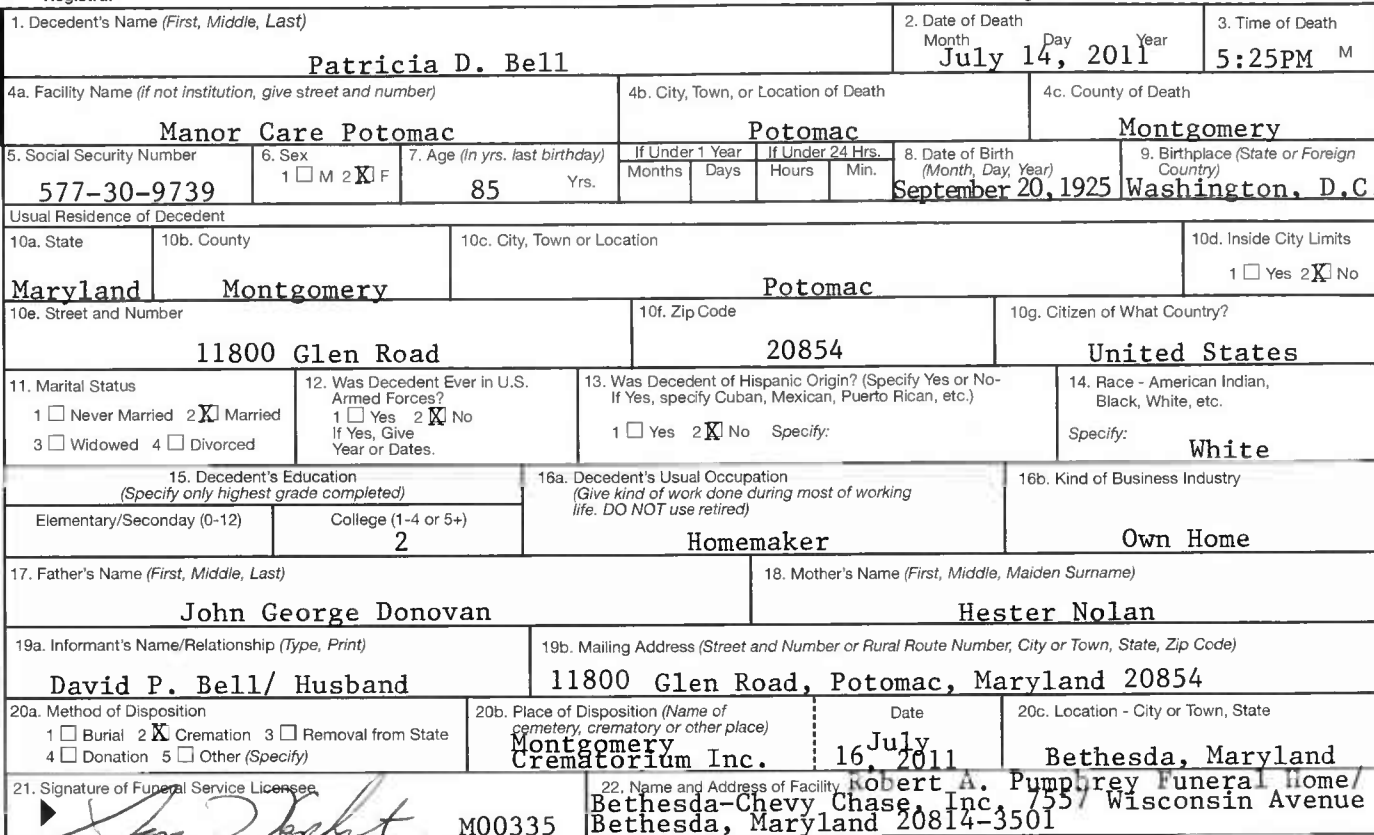 1. Decedent's Name (First, Middle, Last)
Patricia D. Bell
2. Date of Death
Month Day Year
July 14, 2011
3. Time of Death
5:25PM M
4a. Facility Name (if not institution, give street and number)
Manor Care Potomac
4b. City, Town, or Location of Death
Potomac
4c. County of Death
Montgomery
5. Social Security Number
577-30-9739
6. Sex
1 ☐ M 2 ☒ F
7. Age (In yrs. last birthday)
85 Yrs.
If Under 1 Year
Months Days
If Under 24 Hrs.
Hours Min.
8. Date of Birth
(Month, Day, Year)
September 20, 1925
9. Birthplace (State or Foreign
Country)
Washington, D.C
Usual Residence of Decedent
10a. State
Maryland
10b. County
Montgomery
10c. City, Town or Location
Potomac
10d. Inside City Limits
1 ☐ Yes 2 ☒ No
10e. Street and Number
11800 Glen Road
10f. Zip Code
20854
10g. Citizen of What Country?
United States
11. Marital Status
1 ☐ Never Married 2 ☒ Married
3 ☐ Widowed 4 ☐ Divorced
12. Was Decedent Ever in U.S.
Armed Forces?
1 ☐ Yes 2 ☒ No
If Yes, Give
Year or Dates.
13. Was Decedent of Hispanic Origin? (Specify Yes or No-
If Yes, specify Cuban, Mexican, Puerto Rican, etc.)
1 ☐ Yes 2 ☒ No Specify:
14. Race - American Indian,
Black, White, etc.
Specify:
White
15. Decedent's Education
(Specify only highest grade completed)
Elementary/Seconday (0-12)
College (1-4 or 5+)
2
16a. Decedent's Usual Occupation
(Give kind of work done during most of working
life. DO NOT use retired)
Homemaker
16b. Kind of Business Industry
Own Home
17. Father's Name (First, Middle, Last)
John George Donovan
18. Mother's Name (First, Middle, Maiden Surname)
Hester Nolan
19a. Informant's Name/Relationship (Type, Print)
David P. Bell/ Husband
19b. Mailing Address (Street and Number or Rural Route Number, City or Town, State, Zip Code)
11800 Glen Road, Potomac, Maryland 20854
20a. Method of Disposition
1 ☐ Burial 2 ☒ Cremation 3 ☐ Removal from State
4 ☐ Donation 5 ☐ Other (Specify)
20b. Place of Disposition (Name of
cemetery, crematory or other place)
Montgomery
Crematorium Inc.
Date
July
16, 2011
20c. Location - City or Town, State
Bethesda, Maryland
21. Signature of Funeral Service Licensee
M00335
22. Name and Address of Facility Robert A. Pumphrey Funeral Home/
Bethesda-Chevy Chase, Inc, 7557 Wisconsin Avenue
Bethesda, Maryland 20814-3501